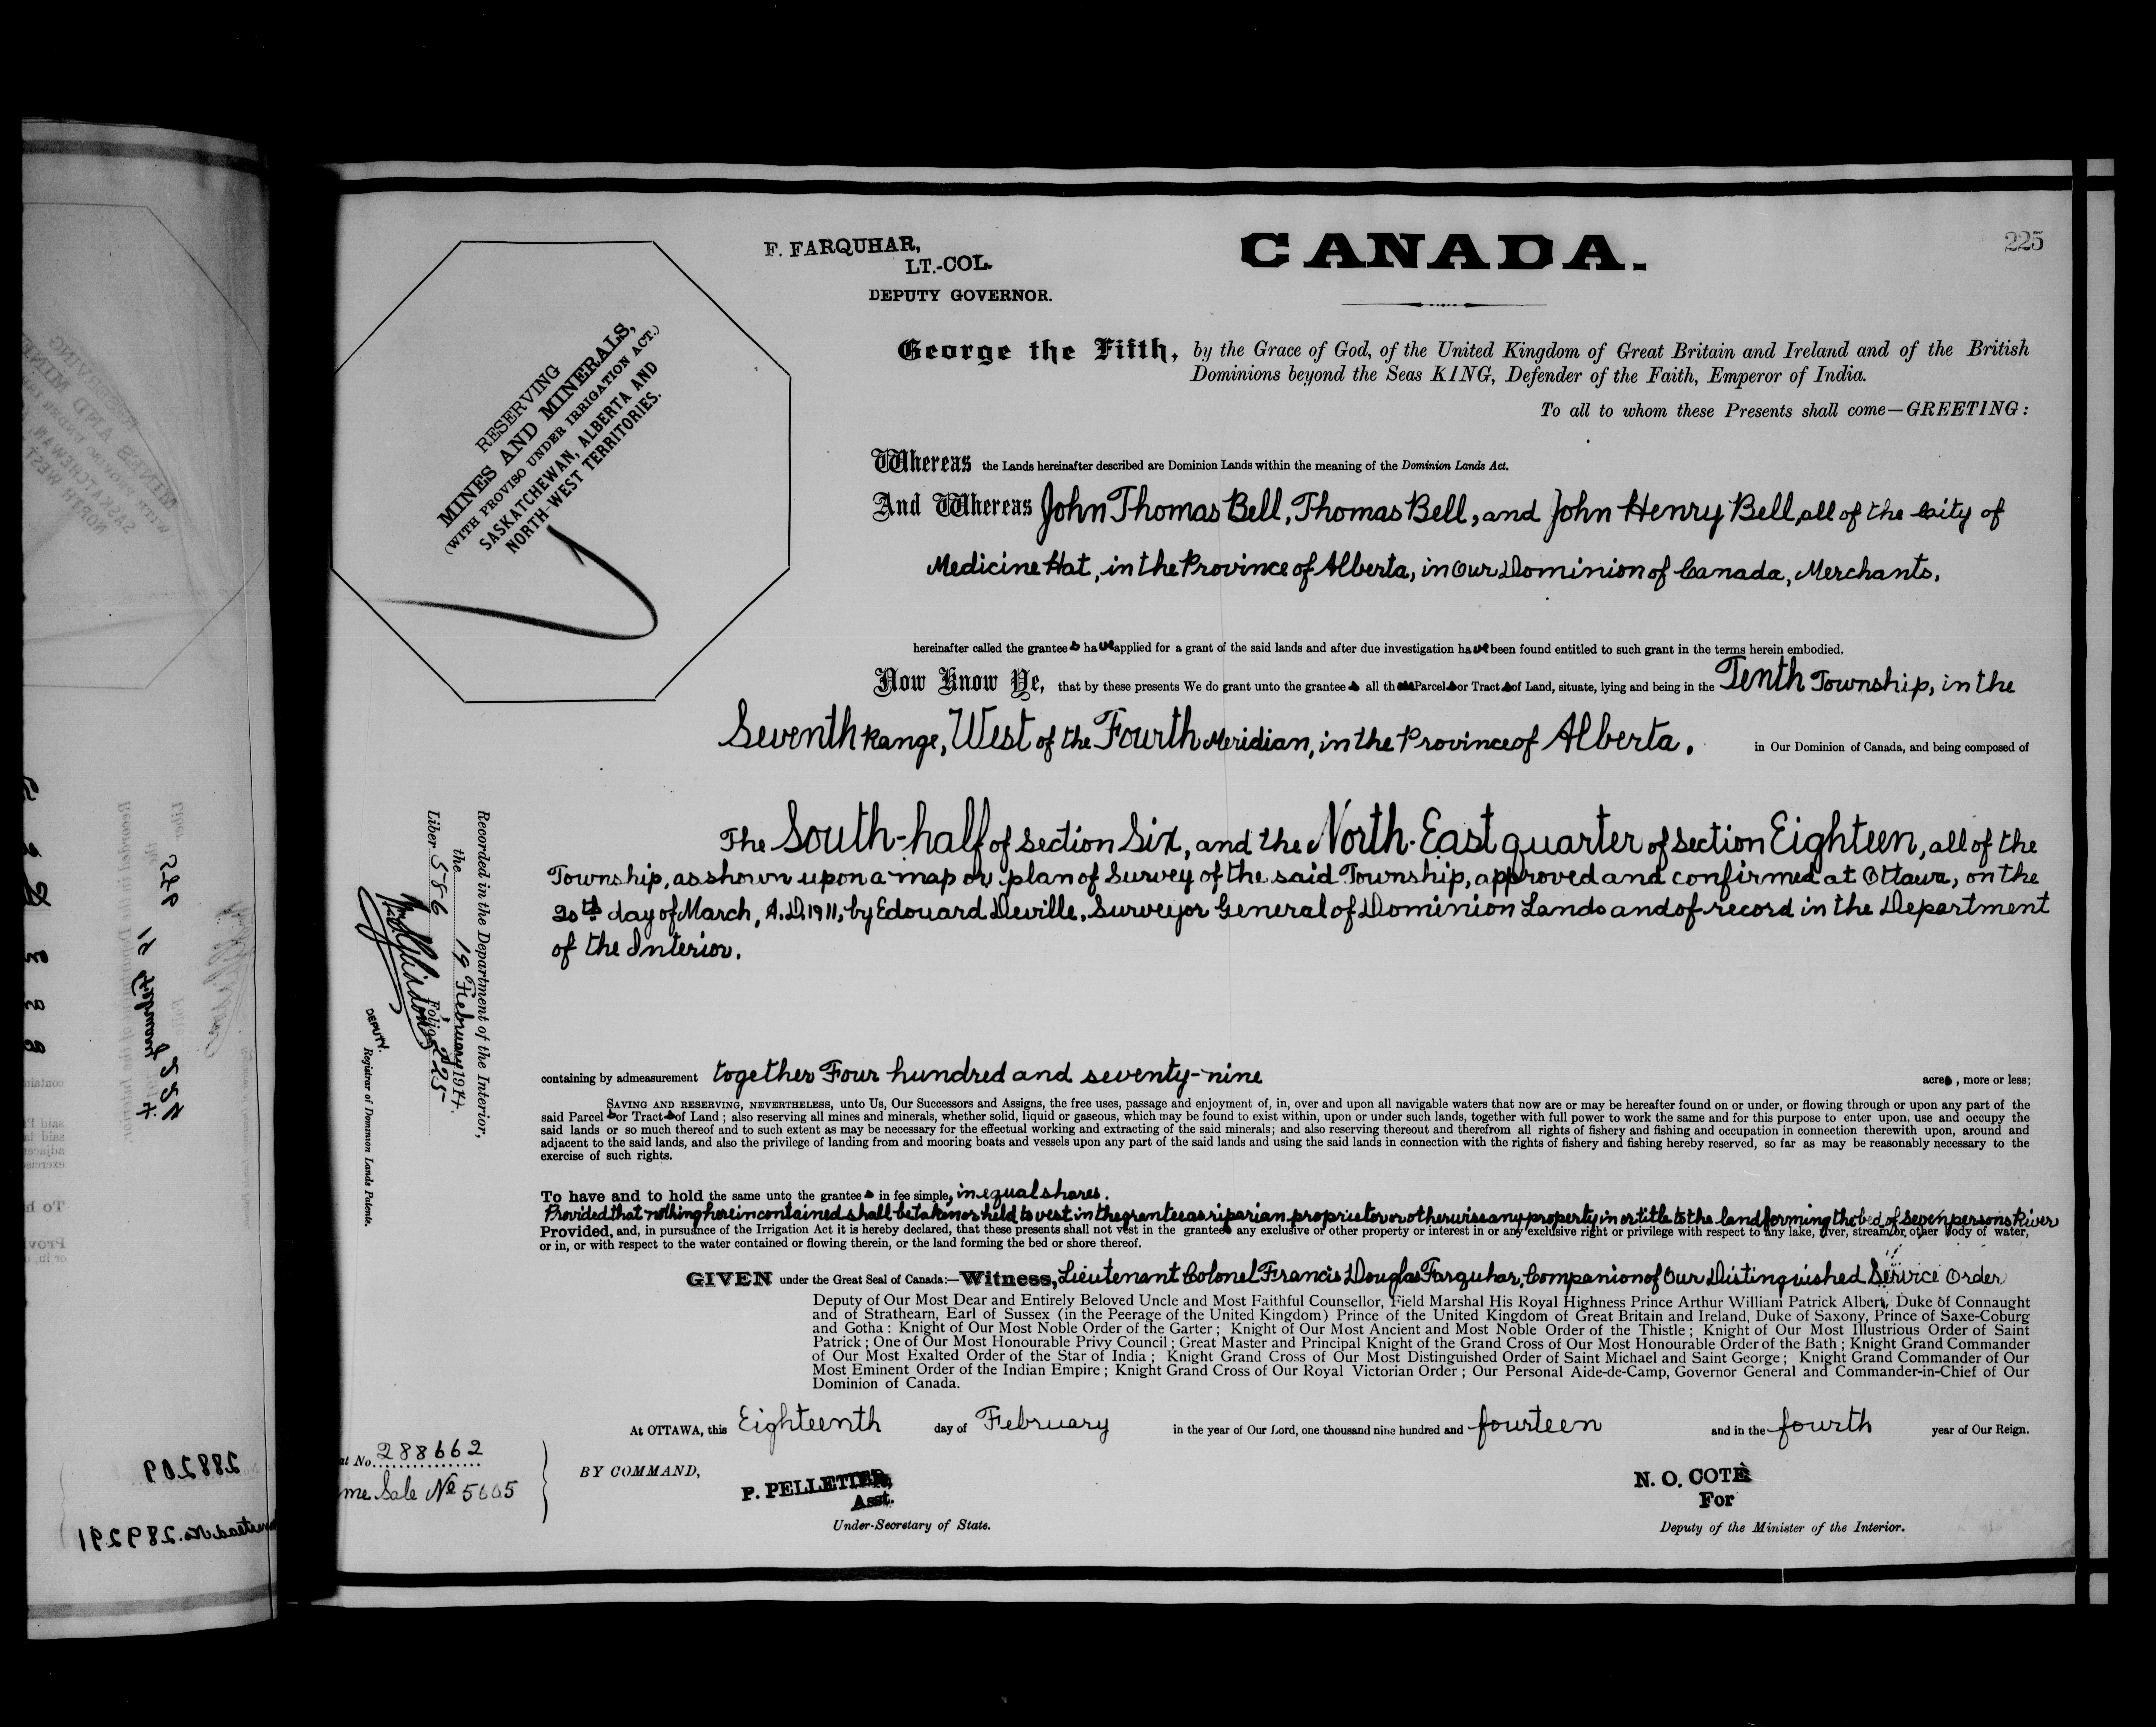 F. FARQUHAR,
LT.-COL.
DEPUTY GOVERNOR.
CANADA.
225
RESERVING
MINES AND MINERALS,
(WITH PROVISO UNDER IRRIGATION ACT.)
SASKATCHEWAN, ALBERTA AND
NORTH-WEST TERRITORIES.
George the Fifth, by the Grace of God, of the United Kingdom of Great Britain and Ireland and of the British
Dominions beyond the Seas KING, Defender of the Faith, Emperor of India.
To all to whom these Presents shall come—GREETING:
Whereas the Lands hereinafter described are Dominion Lands within the meaning of the Dominion Lands Act.
And Whereas John Thomas Bell, Thomas Bell, and John Henry Bell, all of the City of
Medicine Hat, in the Province of Alberta, in Our Dominion of Canada, Merchants,
hereinafter called the grantees have applied for a grant of the said lands and after due investigation have been found entitled to such grant in the terms herein embodied.
Now Know Ye, that by these presents We do grant unto the grantees all those Parcels or Tracts of Land, situate, lying and being in the Tenth Township, in the
Seventh Range, West of the Fourth Meridian, in the Province of Alberta, in Our Dominion of Canada, and being composed of
The South-half of Section Six, and the North-East quarter of Section Eighteen, all of the
Township, as shown upon a map or plan of Survey of the said Township, approved and confirmed at Ottawa, on the
30th day of March, A.D. 1911, by Edouard Deville, Surveyor General of Dominion Lands and of record in the Department
of the Interior.
Recorded in the Department of the Interior,
the 19 February 1914.
Liber 586 Folio 225
DEPUTY.
Registrar of Dominion Lands Patents.
containing by admeasurement together Four hundred and seventy-nine acres, more or less;
SAVING AND RESERVING, NEVERTHELESS, unto Us, Our Successors and Assigns, the free uses, passage and enjoyment of, in, over and upon all navigable waters that now are or may be hereafter found on or under, or flowing through or upon any part of the
said Parcels or Tracts of Land; also reserving all mines and minerals, whether solid, liquid or gaseous, which may be found to exist within, upon or under such lands, together with full power to work the same and for this purpose to enter upon, use and occupy the
said lands or so much thereof and to such extent as may be necessary for the effectual working and extracting of the said minerals; and also reserving thereout and therefrom all rights of fishery and fishing and occupation in connection therewith upon, around and
adjacent to the said lands, and also the privilege of landing from and mooring boats and vessels upon any part of the said lands and using the said lands in connection with the rights of fishery and fishing hereby reserved, so far as may be reasonably necessary to the
exercise of such rights.
To have and to hold the same unto the grantees in fee simple, in equal shares.
Provided that nothing herein contained shall be taken or held to vest in the grantee as riparian proprietor or otherwise any property in or title to the land forming the bed of Seven persons River
Provided, and, in pursuance of the Irrigation Act it is hereby declared, that these presents shall not vest in the grantees any exclusive or other property or interest in or any exclusive right or privilege with respect to any lake, river, stream or other body of water,
or in, or with respect to the water contained or flowing therein, or the land forming the bed or shore thereof.
GIVEN under the Great Seal of Canada:—Witness, Lieutenant Colonel Francis Douglas Farquhar, Companion of Our Distinguished Service Order
Deputy of Our Most Dear and Entirely Beloved Uncle and Most Faithful Counsellor, Field Marshal His Royal Highness Prince Arthur William Patrick Albert, Duke of Connaught
and of Strathearn, Earl of Sussex (in the Peerage of the United Kingdom) Prince of the United Kingdom of Great Britain and Ireland, Duke of Saxony, Prince of Saxe-Coburg
and Gotha: Knight of Our Most Noble Order of the Garter; Knight of Our Most Ancient and Most Noble Order of the Thistle; Knight of Our Most Illustrious Order of Saint
Patrick; One of Our Most Honourable Privy Council; Great Master and Principal Knight of the Grand Cross of Our Most Honourable Order of the Bath; Knight Grand Commander
of Our Most Exalted Order of the Star of India; Knight Grand Cross of Our Most Distinguished Order of Saint Michael and Saint George; Knight Grand Commander of Our
Most Eminent Order of the Indian Empire; Knight Grand Cross of Our Royal Victorian Order; Our Personal Aide-de-Camp, Governor General and Commander-in-Chief of Our
Dominion of Canada.
At OTTAWA, this Eighteenth day of February in the year of Our Lord, one thousand nine hundred and fourteen and in the fourth year of Our Reign.
at No. 288662
me Sale No 5605
BY COMMAND,
P. PELLETIER,
Asst.
Under-Secretary of State.
N. O. COTÉ
For
Deputy of the Minister of the Interior.